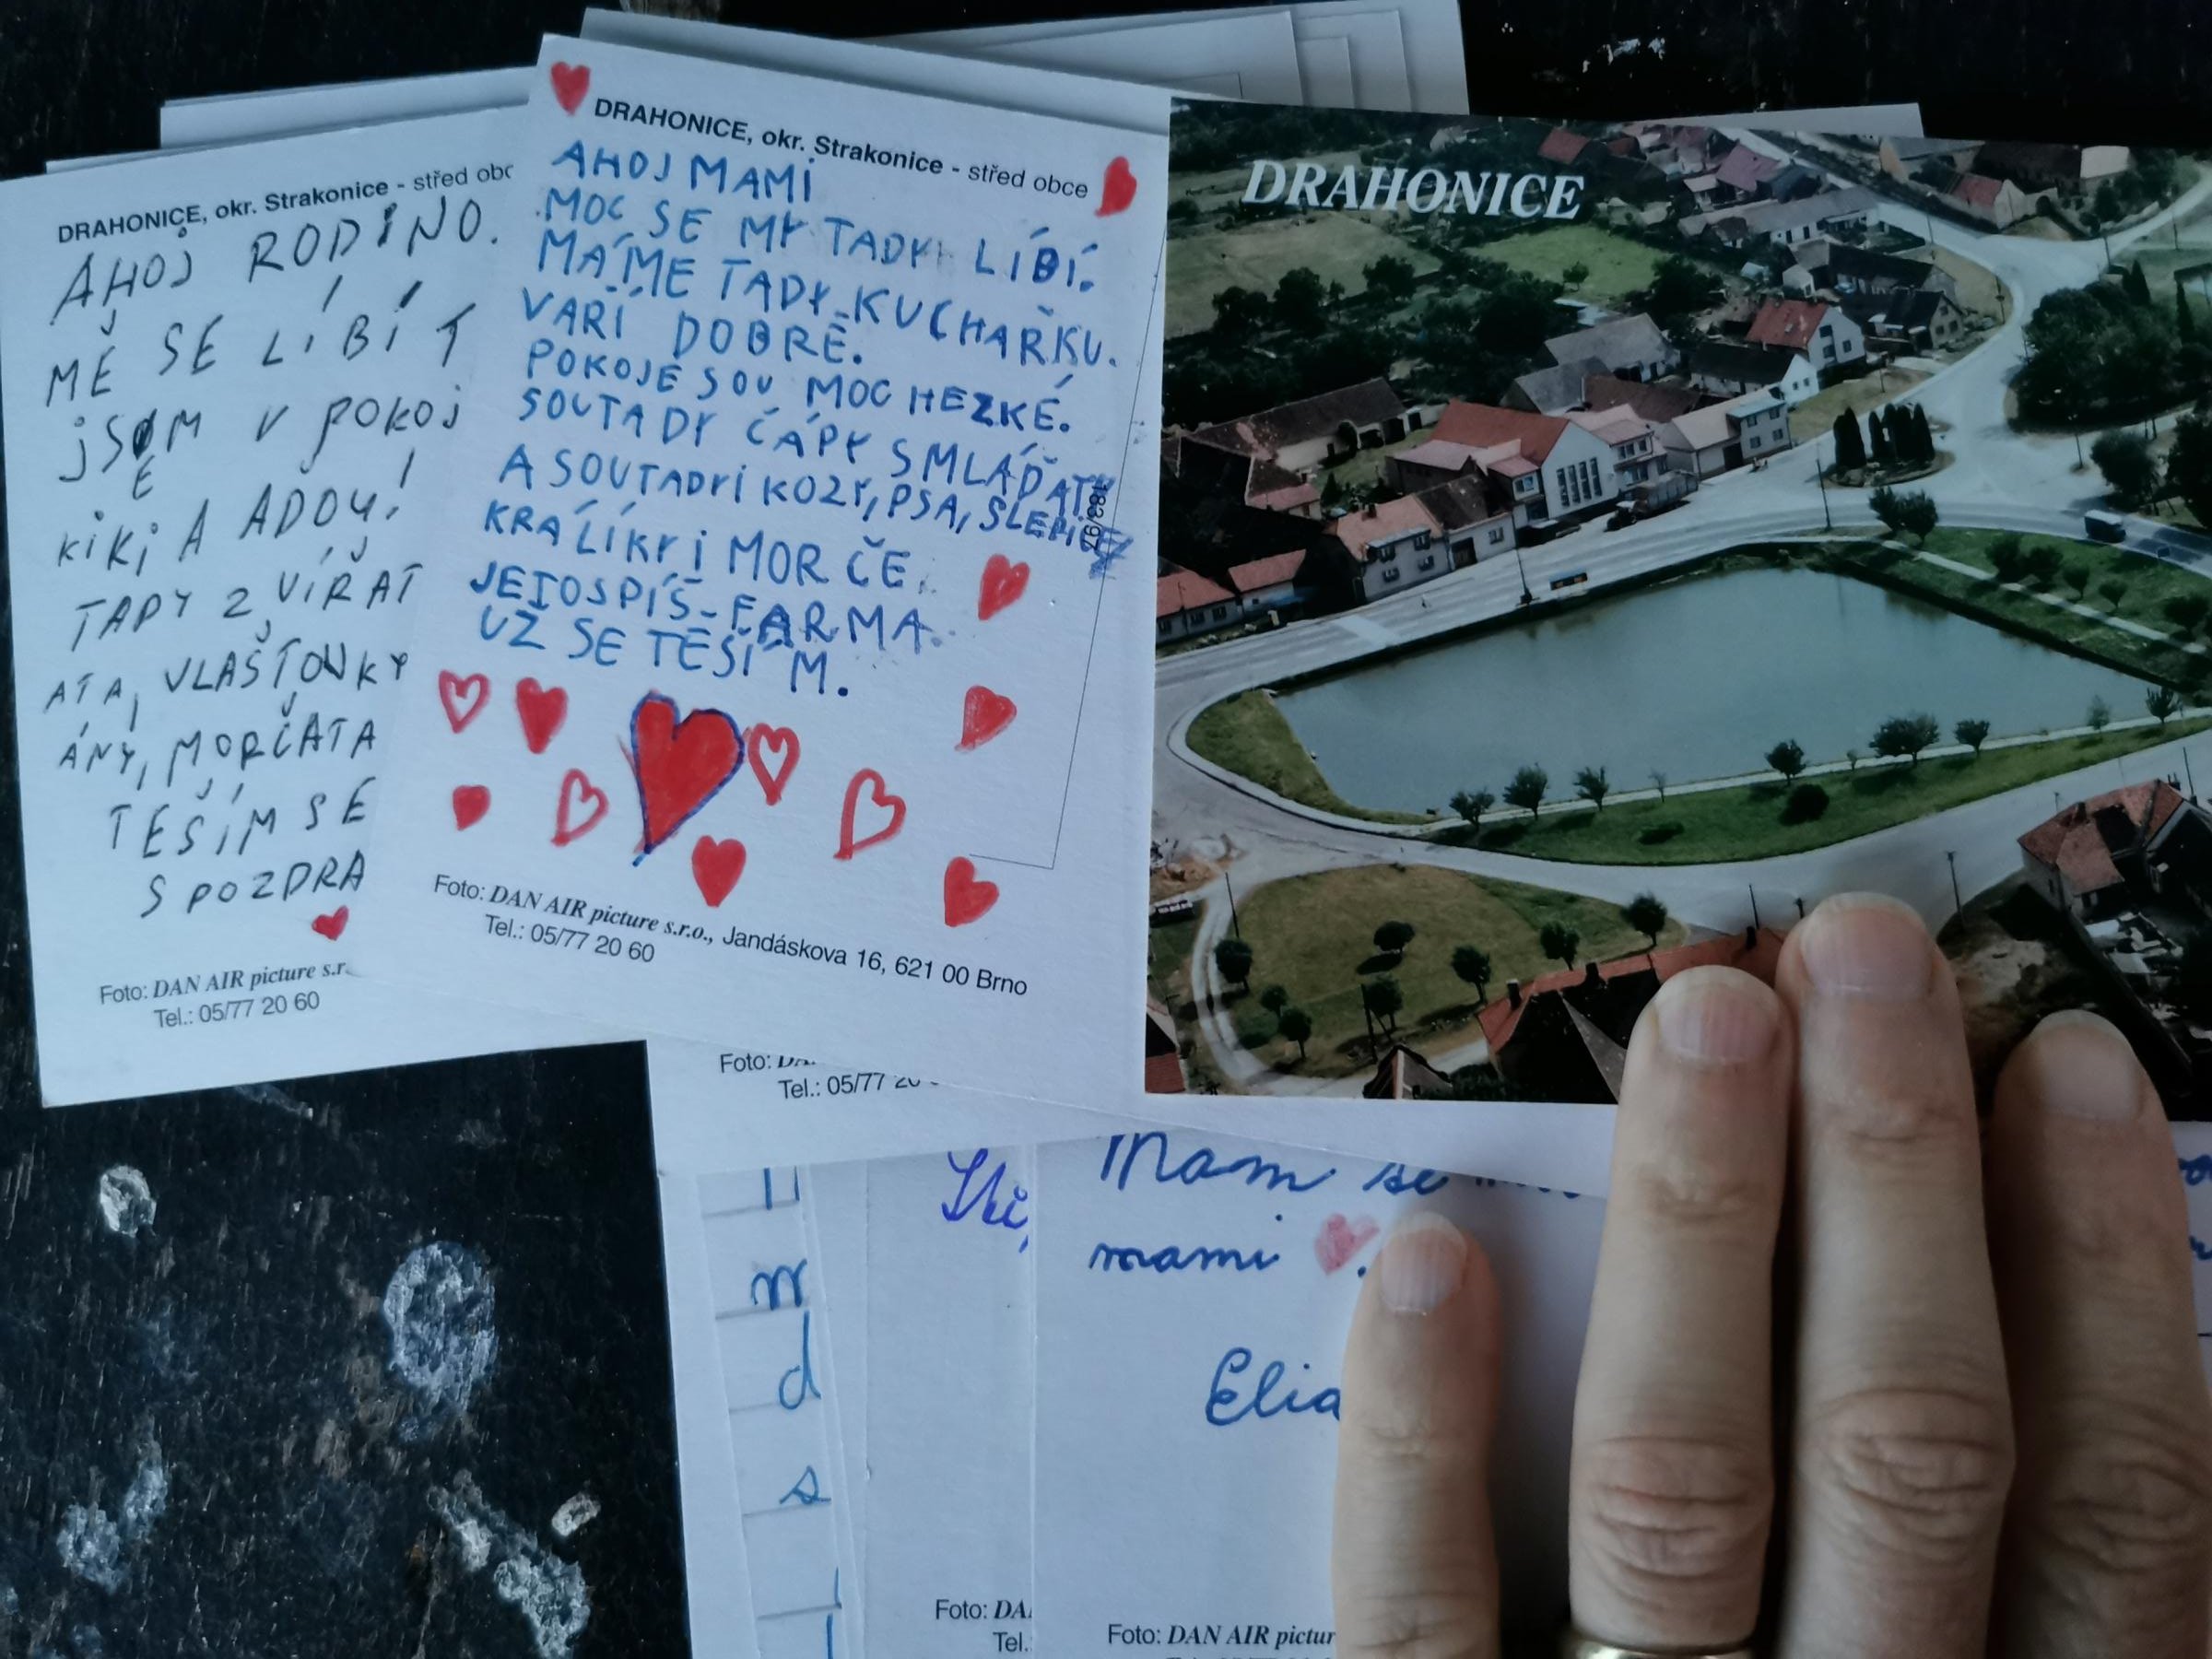 DRAHONICE, okr. Strakonice - střed obc
AHOJ RODINO.
MĚ SE LÍBÍ T
JSEM V POKOJ
KIKI A ADOU!
TADY ZVÍŘAT
ATA, VLAŠŤOVKY
ÁNY, MORČATA
TĚŠÍM SE
S POZDRA
Foto: DAN AIR picture s.r
Tel.: 05/77 20 60
DRAHONICE, okr. Strakonice - střed obce
AHOJ MAMI
MOC SE MY TADY LÍBÍ.
MÁME TADY KUCHAŘKU.
VAŘÍ DOBRĚ.
POKOJE SOU MOC HEZKÉ.
SOUTADY ČÁPY SMLÁĎATY
A SOUTADYI KOZY, PSA, SLEPIC
KRALÍKY I MORČE.
JETOSPÍŠ FARMA.
UŽ SE TĚŠÍM.
183/97
Foto: DAN AIR picture s.r.o., Jandáskova 16, 621 00 Brno
Tel.: 05/77 20 60
DRAHONICE
Foto: DA
Tel.: 05/77 20
Mam se
mami
Elia
m
d
s
Foto: DA
Tel.
Foto: DAN AIR pictur